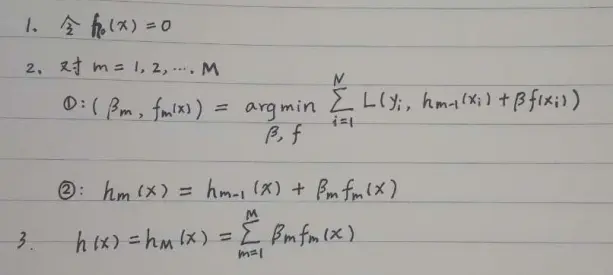 1. 令 h₀(x) = 0
2. 对 m = 1, 2, ···. M
①: (βm, fm(x)) = argmin β, f ∑_{i=1}^{N} L(yi, hm-1(xi) + βf(xi))
②: hm(x) = hm-1(x) + βm fm(x)
3. h(x) = hM(x) = ∑_{m=1}^{M} βm fm(x)